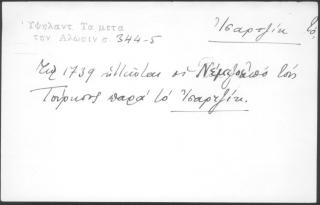 Ὑψηλαντ. Τα μετα
την Αλωσιν σ. 344-5
Ὑσαρτζίκ τό
Τῷ 1739 ἡττῶνται οἱ Νέμτζοι ὑπό τῶν
Τούρκων παρά τό Ὑσαρτζίκ.